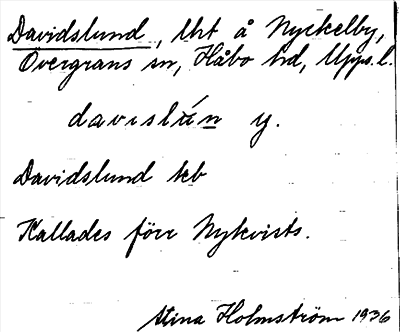 Davidslund, lht å Nyckelby,
Övergrans sn, Håbo hd, Upps. l.
davislún y.
Davidslund kb
Kallades förr Nykvists.
Stina Holmström 1936